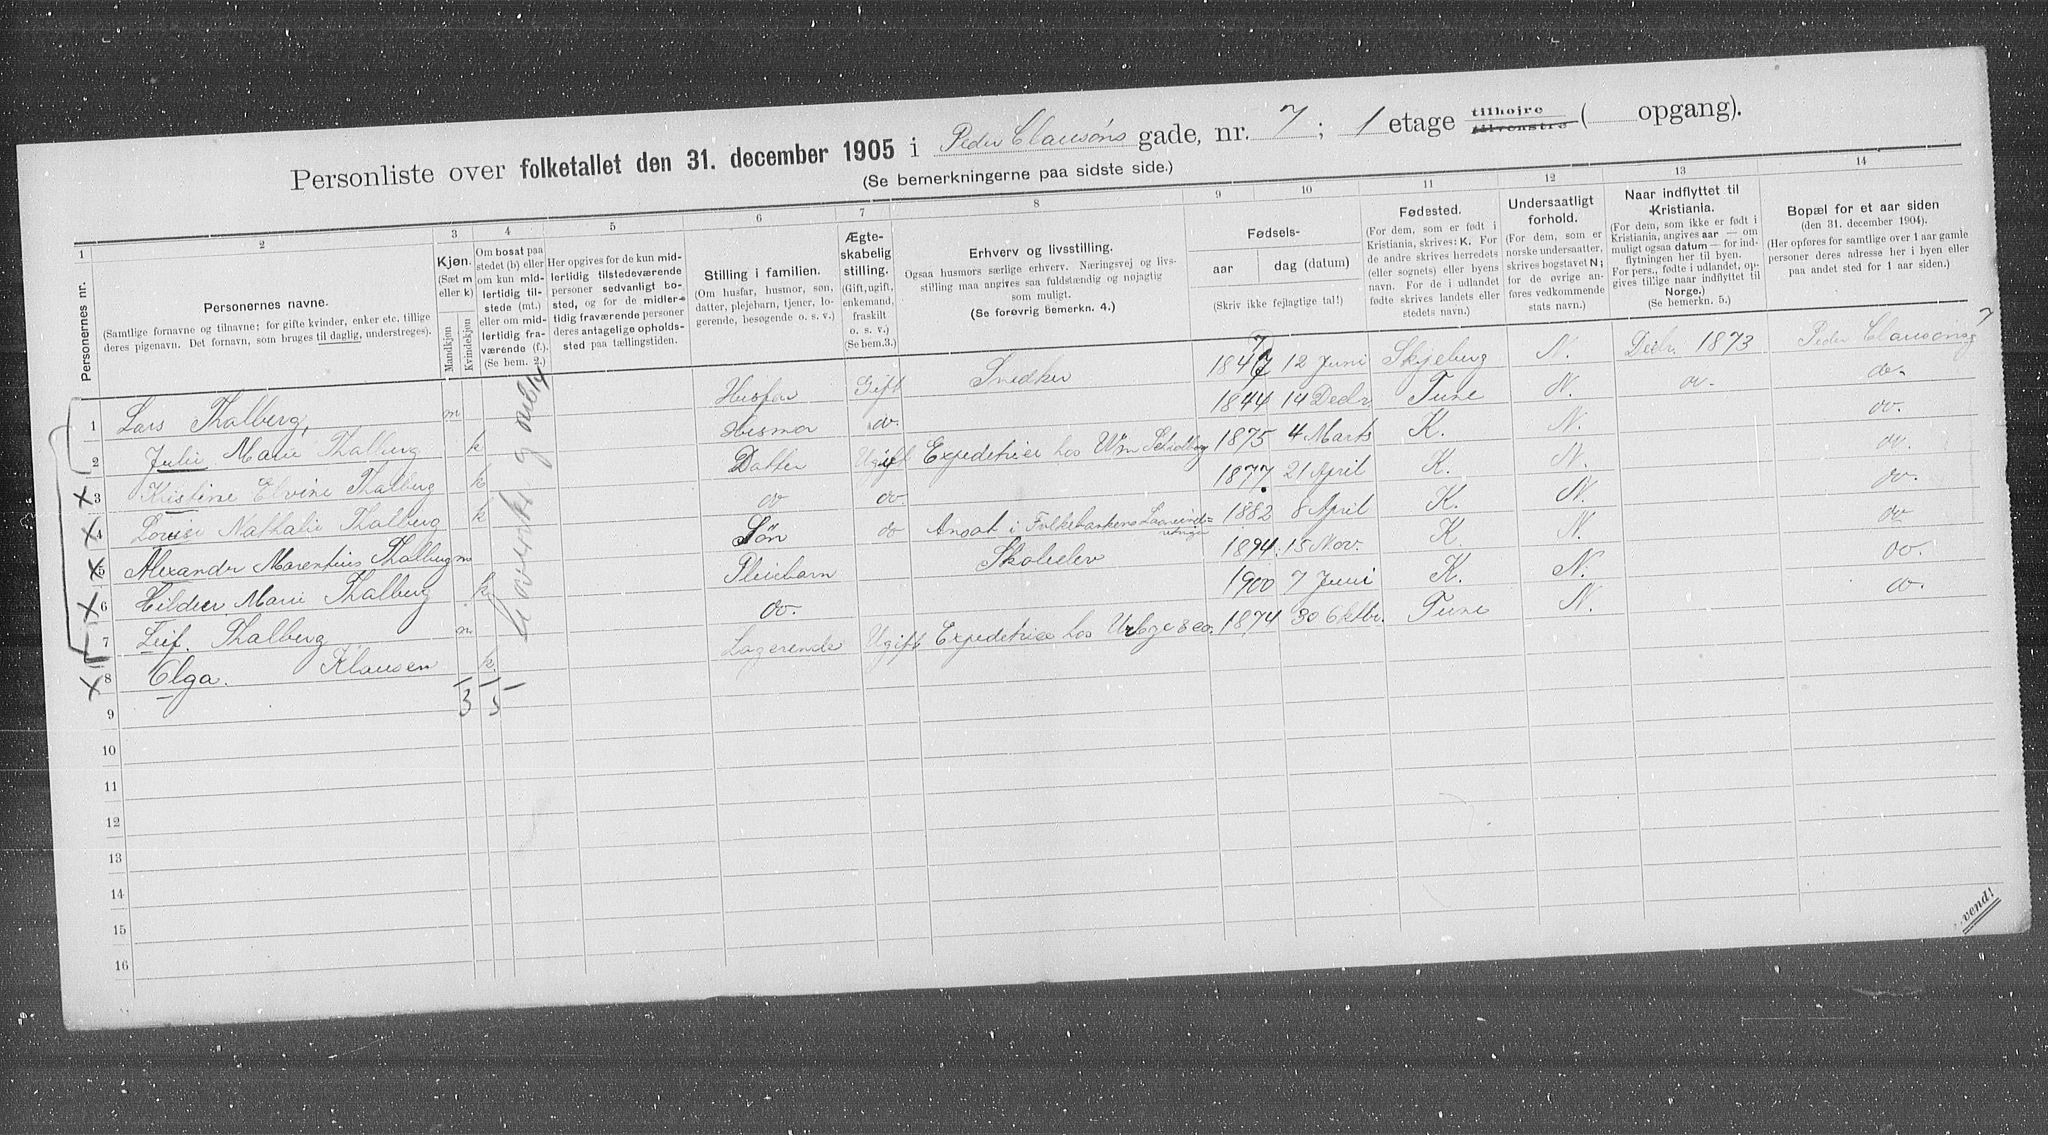 Personliste over folketallet den 31. december 1905 i Peder Clausøns gade, nr. 7; 1 etage tilhøjre tilvenstre ( opgang).
(Se bemerkningerne paa sidste side.)
1 2 3 4 5 6 7 8 9 10 11 12 13 14
Personernes nr.
Personernes navne.
(Samtlige fornavne og tilnavne; for gifte kvinder, enker etc. tillige deres pigenavn. Det fornavn, som bruges til daglig, understreges).
Kjøn.
(Sæt m eller k).
Mandkjøn
Kvindekjøn
Om bosat paa stedet (b) eller om kun midlertidig tilstede (mt.) eller om midlertidig fraværende (f.). (Se bem. 2.)
Her opgives for de kun midlertidig tilstedeværende personer sedvanligt bosted, og for de midlertidig fraværende personer deres antagelige opholdssted paa tællingstiden.
Stilling i familien.
(Om husfar, husmor, søn, datter, plejebarn, tjener, logerende, besøgende o. s. v.)
Ægteskabelig stilling.
(Gift, ugift, enkemand, fraskilt o. s. v.)
(Se bem.3.)
Erhverv og livsstilling.
Ogsaa husmors særlige erhverv. Næringsvej og livsstilling maa angives saa fuldstændig og nøjagtig som muligt.
(Se forøvrig bemerkn. 4.)
Fødsels-
aar dag (datum)
(Skriv ikke fejlagtige tal!)
Fødested.
(For dem, som er født i Kristiania, skrives: K. For de andre skrives herredets (eller sognets) eller byens navn. For de i udlandet fødte skrives landets eller stedets navn.)
Undersaatligt forhold.
(For dem, som er norske undersaatter, skrives bogstavet N; for de øvrige anføres vedkommende stats navn.)
Naar indflyttet til Kristiania.
(For dem, som ikke er født i Kristiania, angives aar — om muligt ogsaa datum — for indflytningen her til byen. For pers., fødte i udlandet, opgives tillige naar indflyttet til Norge.)
(Se bemerkn. 5.)
Bopæl for et aar siden
(den 31. december 1904).
(Her opføres for samtlige over 1 aar gamle personer deres adresse her i byen eller paa andet sted for 1 aar siden.)
1 Lars Thalberg, m Husfar Gift Snedker 1847 12 Juni Skjeberg N. Decbr. 1873 Peder Clausønsg 7
2 Julie Marie Thalberg k Husmor do. 1844 14 Decbr. Tune N. do.
3 Kristine Elvine Thalberg k Datter Ugift Expeditrise hos Wm 1875 4 Marts K. N. do.
4 Louise Nathalie Thalberg k do do 1877 21 April K. N. do.
5 Alexander Marentius Thalberg m Søn do Ansat i Folkebankens 1882 8 April K. N. do.
6 Marie Thalberg k Pleiebarn Skoleelev 1894 15 Nov. K. N. do
7 Leif. Thalberg m do. 1900 7 Juni K. N. do.
8 Olga. Klausen k. Logerende Ugift Expeditrise hos & co. 1874 30 Oktbr. Tune N. do.
3 5
9
10
11
12
13
14
15
16
vend!